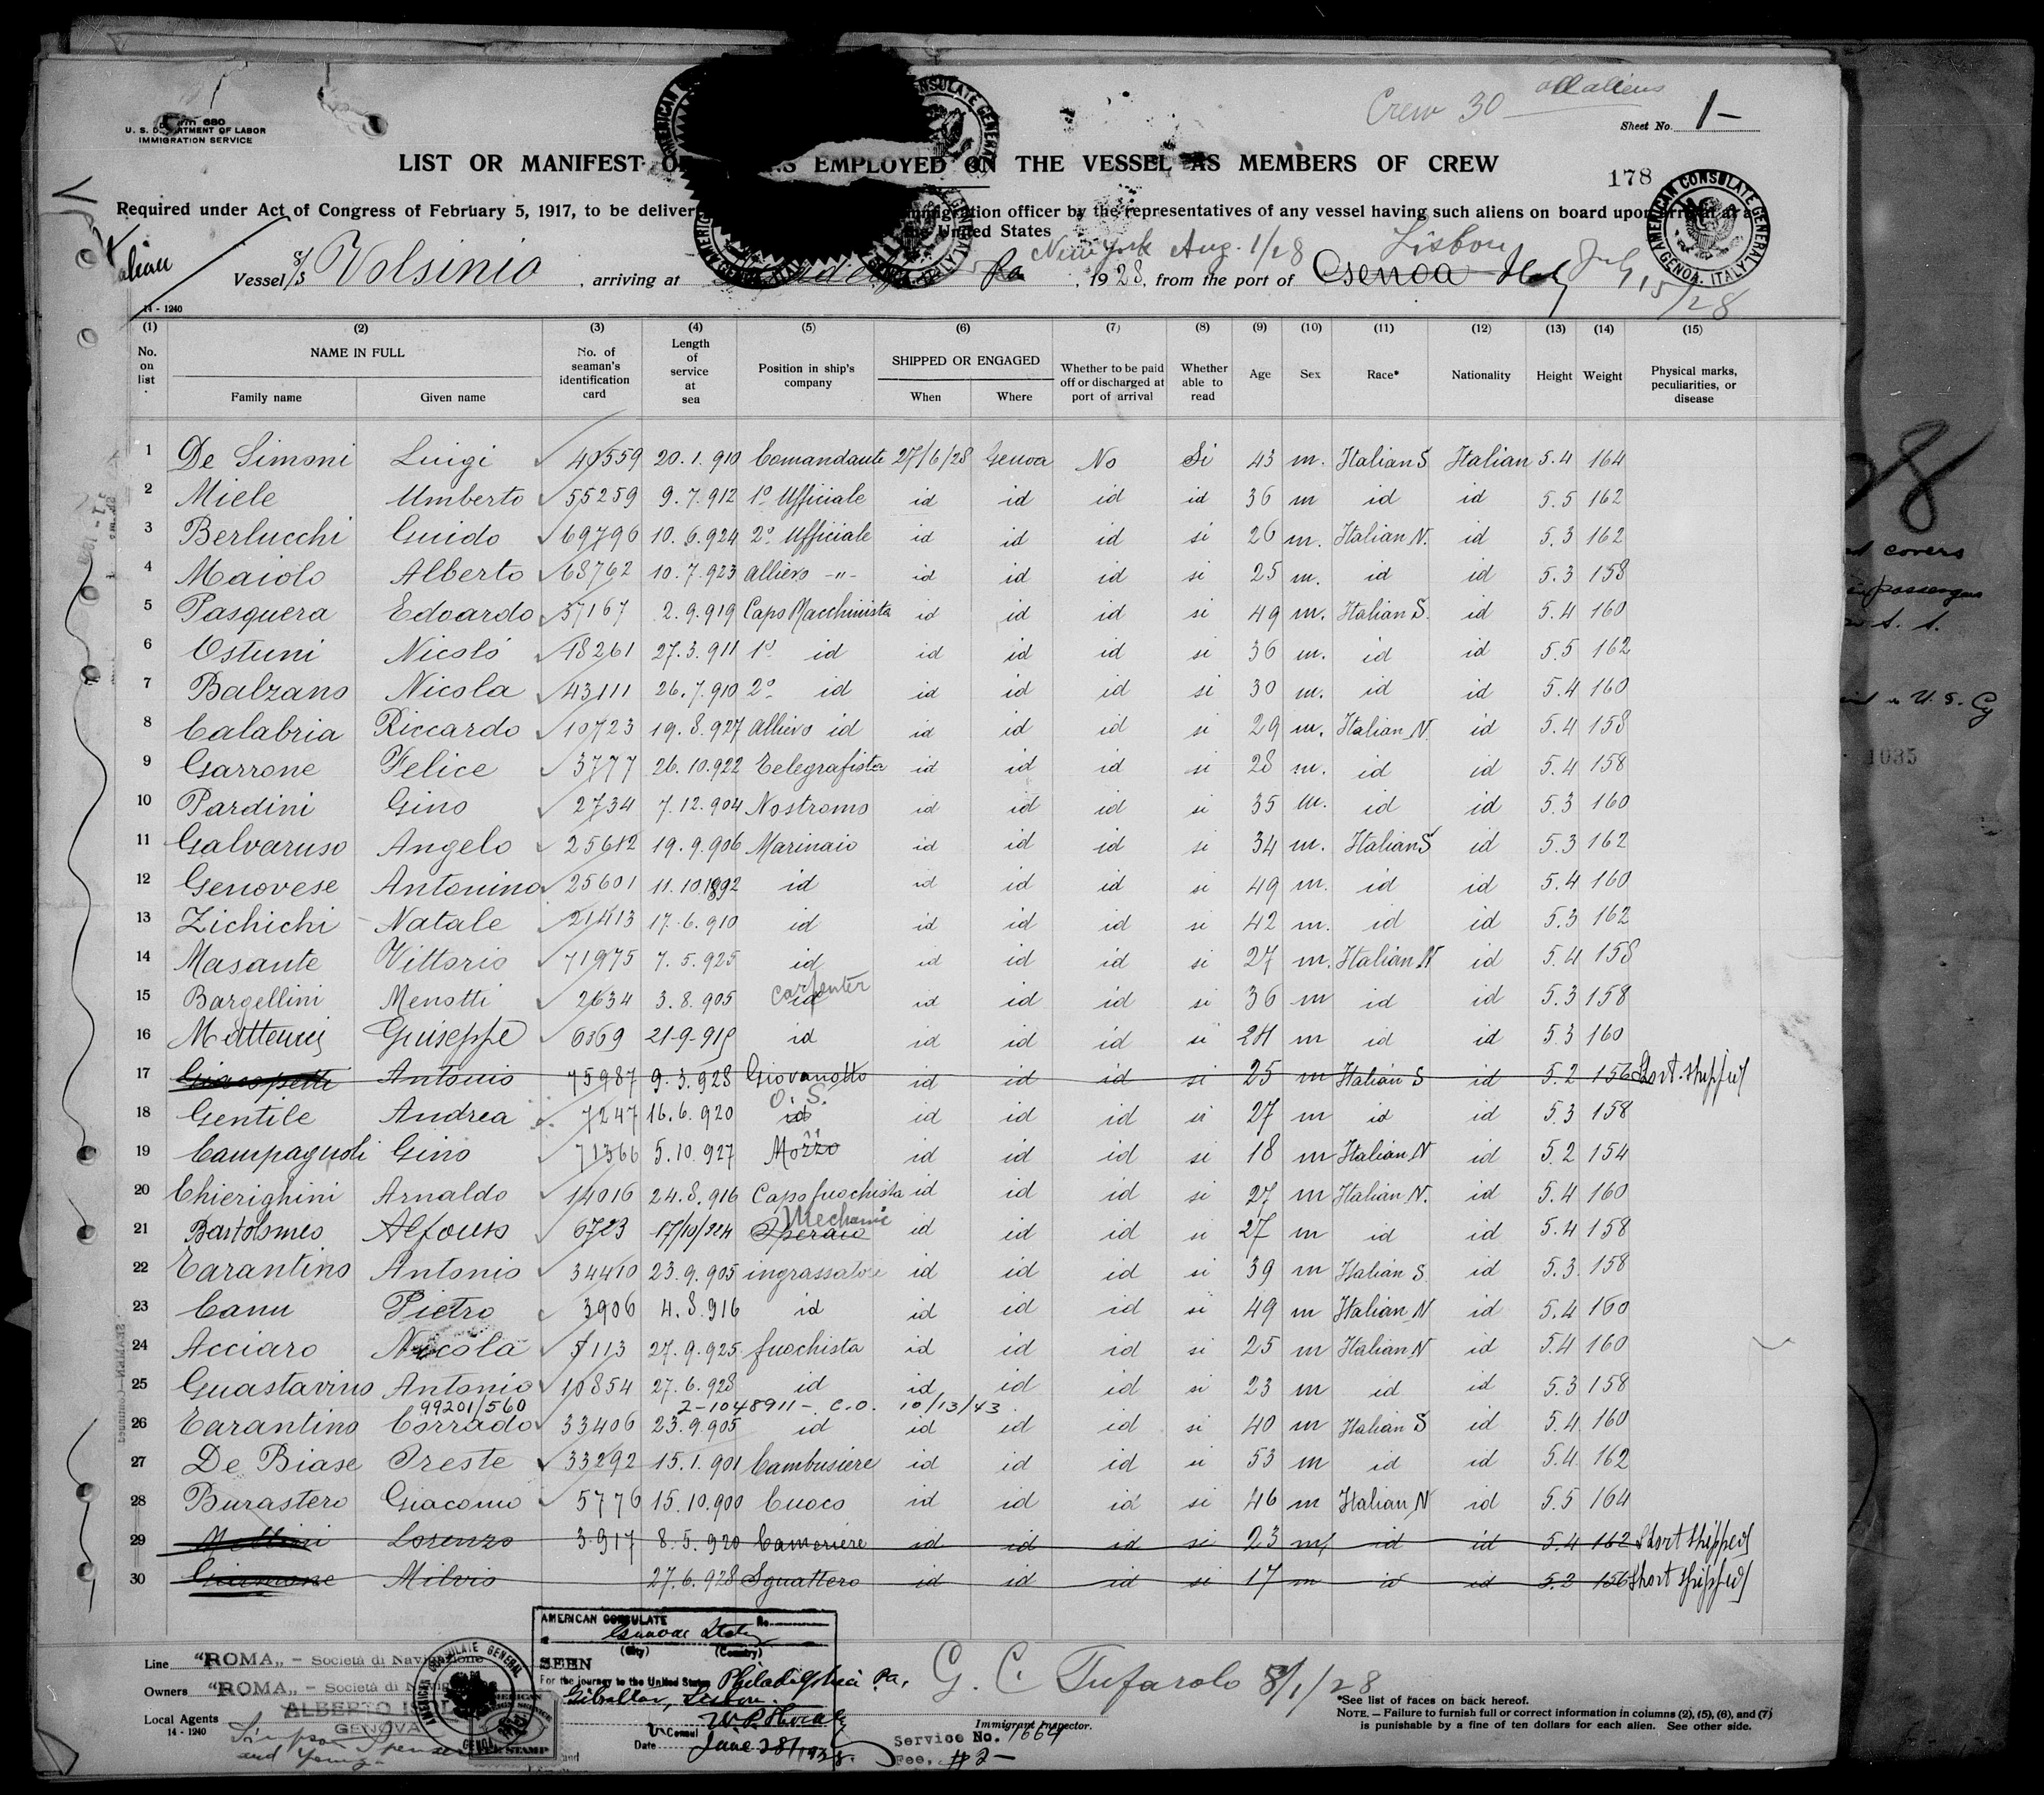 Crew 30 all aliens
Sheet No. 1-
Form 680
U. S. DEPARTMENT OF LABOR
IMMIGRATION SERVICE
LIST OR MANIFEST OF EMPLOYED ON THE VESSEL AS MEMBERS OF CREW
178
Required under Act of Congress of February 5, 1917, to be deliver immigration officer by the representatives of any vessel having such aliens on board upon arrival at a
the United States
AMERICAN CONSULATE GENERAL GENOA. ITALY
New York Aug. 1/28 Lisbon July 15/28
Vessel S/S Volsinio, arriving at Pa, 1928, from the port of Genoa Italy
14 - 1240
(1) (2) (3) (4) (5) (6) (7) (8) (9) (10) (11) (12) (13) (14) (15)
No. on list NAME IN FULL Family name Given name No. of seaman's identification card Length of service at sea Position in ship's company SHIPPED OR ENGAGED When Where Whether to be paid off or discharged at port of arrival Whether able to read Age Sex Race* Nationality Height Weight Physical marks, peculiarities, or disease
1 De Simoni Luigi 40559 20.1.910 Comandante 27/6/28 Genoa No Si 43 m. Italian S Italian 5.4 164
2 Miele Umberto 55259 9.7.912 1º Ufficiale id id id id 36 m id id 5.5 162
3 Berlucchi Guido 69796 10.6.924 2º Ufficiale id id id si 26 m. Italian N. id 5.3 162
4 Maiolo Alberto 68762 10.7.923 Allievo -"- id id id si 25 m. id id 5.3 158
5 Pasquera Edoardo 57167 2.9.919 Capo Macchinista id id id si 49 m. Italian S. id 5.4 160
6 Ostuni Nicoló 18261 27.3.911 1º id id id id si 36 m. id id 5.5 162
7 Balzano Nicola 43111 26.7.910 2º id id id id si 30 m. id id 5.4 160
8 Calabria Riccardo 10723 19.8.927 Allievo id id id id si 29 m. Italian N. id 5.4 158
9 Garrone Felice 3777 26.10.922 Telegrafista id id id si 28 m. id id 5.4 158
10 Pardini Gino 2734 7.12.904 Nostromo id id id si 35 m. id id 5.3 160
11 Galvaruso Angelo 25612 19.9.906 Marinaio id id id si 34 m. Italian S id 5.3 162
12 Genovese Antonino 25601 11.10.1892 id id id id si 49 m. id id 5.4 160
13 Zichichi Natale 21413 17.6.910 id id id id si 42 m. id id 5.3 162
14 Masante Vittorio 71975 7.5.925 id id id id si 27 m. Italian N id 5.4 158
15 Bargellini Menotti 2634 3.8.905 id carpenter id id id si 36 m id id 5.3 158
16 Matteucci Giuseppe 6369 21-9-919 id id id id si 24 m id id 5.3 160
17 Giacopetti Antonio 75987 9.3.928 Giovanotto id id id si 25 m Italian S id 5.2 156 Short shipped
18 Gentile Andrea 7247 16.6.920 id O.S. id id id si 27 m id id 5.3 158
19 Campagnoli Gino 71366 5.10.927 Mozzo " id id id si 18 m Italian N id 5.2 154
20 Chierighini Arnaldo 14016 24.8.916 Capo fuochista id id id si 27 m Italian N. id 5.4 160
21 Bartolomeo 6723 17/10/924 Operaio Mechanic id id id si 27 m id id 5.4 158
22 Tarantino Antonio 34410 23.9.905 ingrassatore id id id si 39 m Italian S. id 5.3. 158
23 Canu Pietro 3906 4.8.916 id id id id si 49 m Italian N id 5.4 160
24 Acciaro Nicola 5113 27.9.925 fuochista id id id si 25 m Italian N id 5.4 160
25 Guastavino Antonio 10854 27.6.928 id id id id si 23 m id id 5.3 158
99201/560 2-1048911-. C.O. 10/13/43
26 Tarantino Corrado 33406 23.9.905 id id id id si 40 m Italian S id 5.4 160
27 De Biase Oreste 33292 15.1.901 Cambusiere id id id si 53 m id id 5.4. 162
28 Burastero Giacomo 5776 15.10.900 Cuoco id id id si 46 m Italian N id 5.5 164
29 Lorenzo 3917 8.5.920 Cameriere id id id si 23 m id id 5.4 162 Short shipped
30 Milvio 27.6.928 Sguattero id id id si 17 m id id 5.3 156 Short shipped
Line "ROMA" - Società di Navigazione
Owners "ROMA" - Società di Navig
Local Agents ALBERTO
GENOVA
14 - 1240
Simpson Spence and Young
AMERICAN CONSULATE No.
Genoa Italy
(City) (Country)
SEEN
For the journey to the United States Philadelphia Pa,
Gibraltar, Lisbon.
Consul
Date June 28/1928.
G. C. Tufarolo 8/1/28
Immigrant Inspector.
Service No. 1664
Fee. #2-
*See list of races on back hereof.
NOTE. - Failure to furnish full or correct information in columns (2), (5), (6), and (7)
is punishable by a fine of ten dollars for each alien. See other side.
covers
passengers
S. S.
U. S. Cy
1035